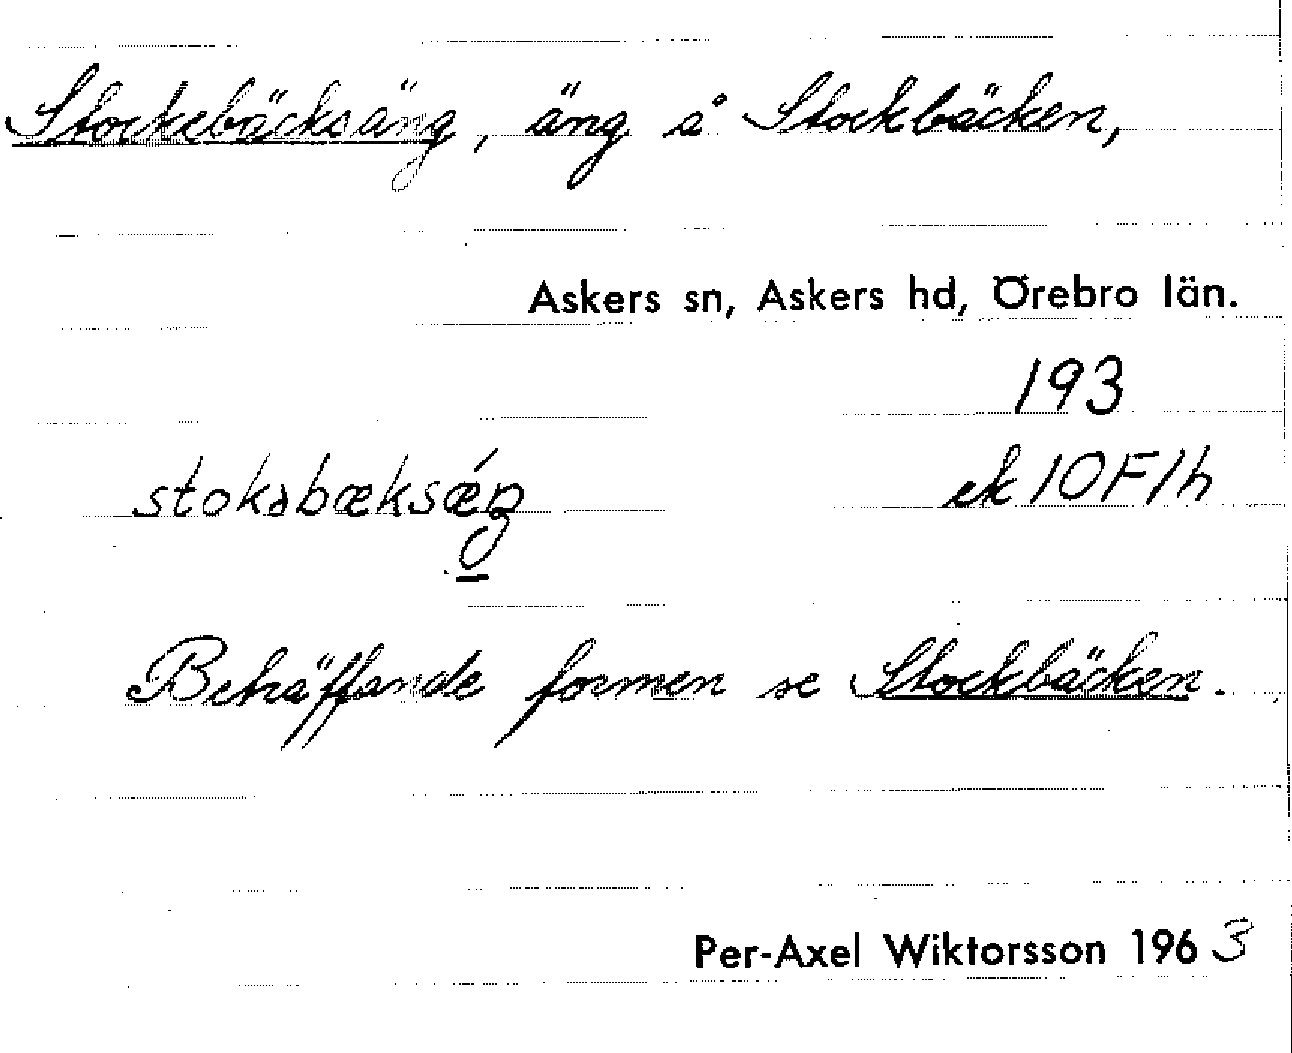 Stockebäcksäng, äng å Stockbäcken,
Askers sn, Askers hd, Örebro län.
193
stokəbæksǽŋ ek 10F1h
Beträffande formen se Stockbäcken.
Per-Axel Wiktorsson 1963